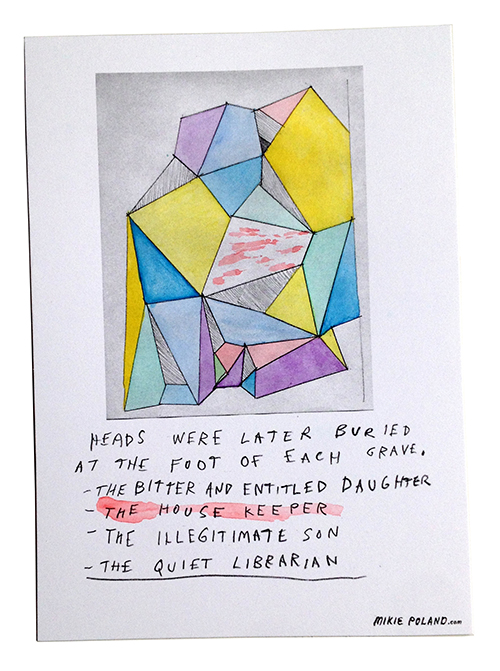 HEADS WERE LATER BURIED
AT THE FOOT OF EACH GRAVE.
- THE BITTER AND ENTITLED DAUGHTER
- THE HOUSE KEEPER
- THE ILLEGITIMATE SON
- THE QUIET LIBRARIAN
MIKIE POLAND.com